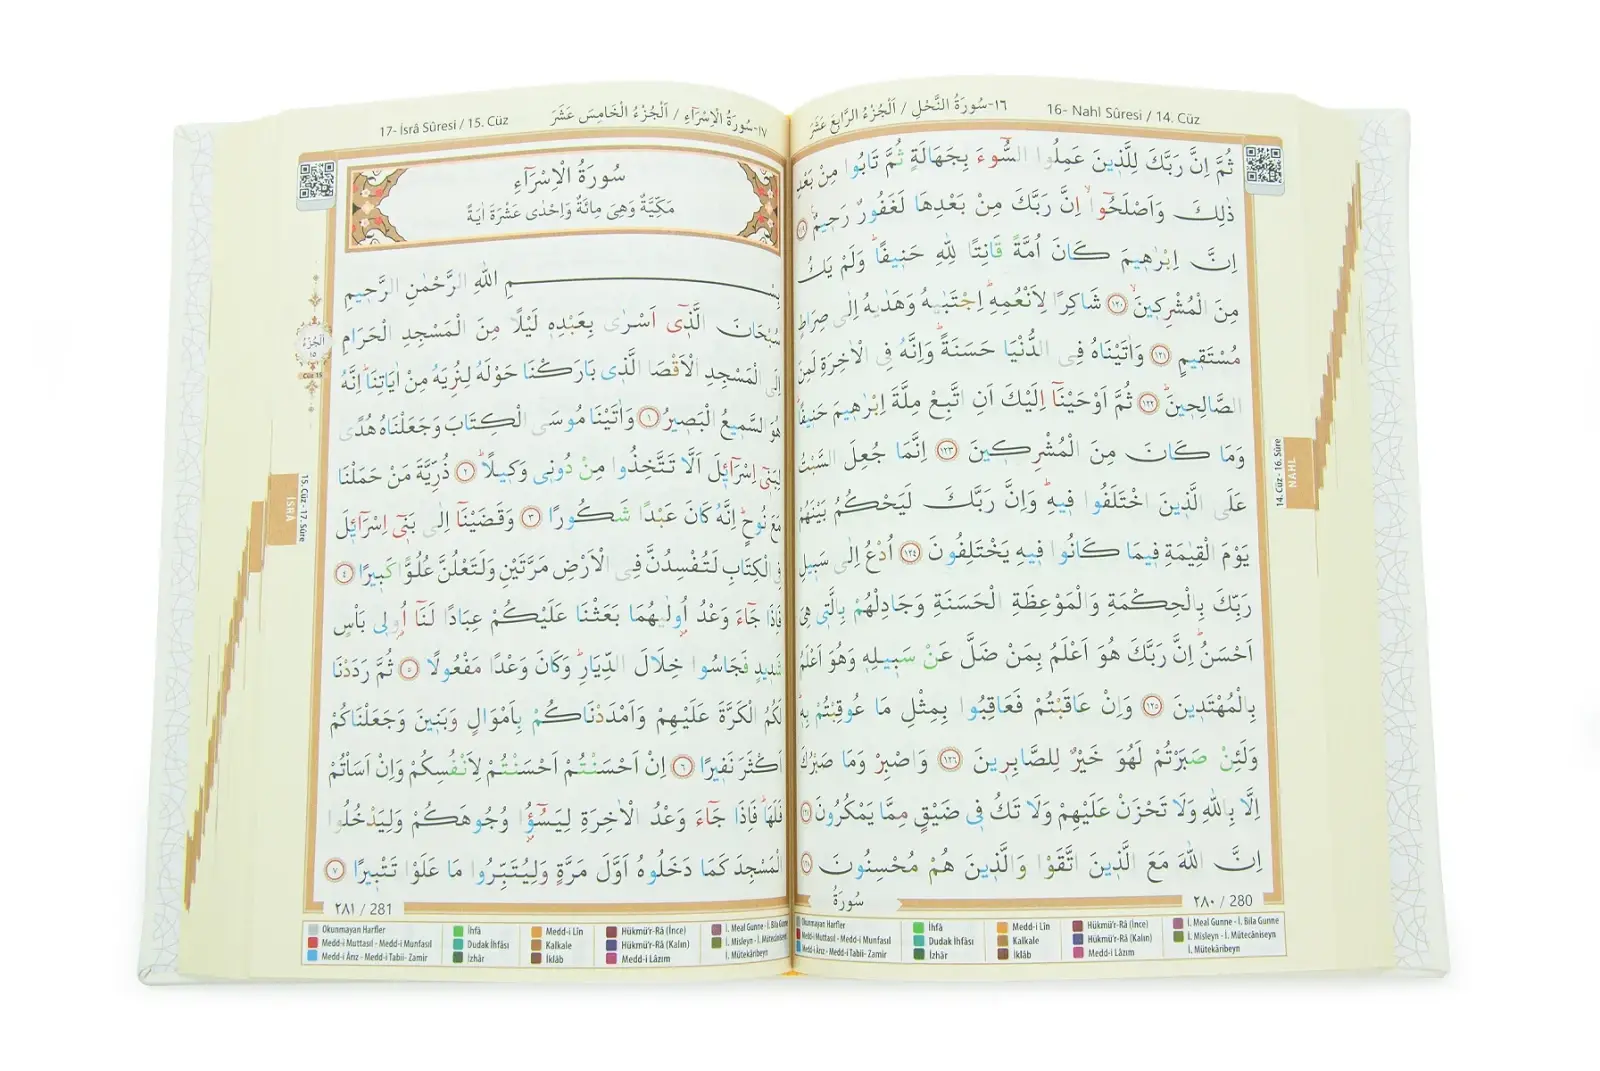 ١٦-سُورَةُ النَّحْلِ / اَلْجُزْءُ الرَّابِعَ عَشَرَ
16- Nahl Sûresi / 14. Cüz
ثُمَّ اِنَّ رَبَّكَ لِلَّذٖينَ عَمِلُوا السُّٓوءَ بِجَهَالَةٍ ثُمَّ تَابُوا مِنْ بَعْدِ
ذٰلِكَ وَاَصْلَحُٓواۙ اِنَّ رَبَّكَ مِنْ بَعْدِهَا لَغَفُورٌ رَحٖيمٌࣖ ﴿١١٩﴾
اِنَّ اِبْرٰهٖيمَ كَانَ اُمَّةً قَانِتًا لِلّٰهِ حَنٖيفًاؕ وَلَمْ يَكُ
مِنَ الْمُشْرِكٖينَۙ ﴿١٢٠﴾ شَاكِرًا لِاَنْعُمِهٖؕ اِجْتَبٰيهُ وَهَدٰيهُ اِلٰى صِرَاطٍ
مُسْتَقٖيمٍ ﴿١٢١﴾ وَاٰتَيْنَاهُ فِى الدُّنْيَا حَسَنَةًؕ وَاِنَّهُ فِى الْاٰخِرَةِ لَمِنَ
الصَّالِحٖينَؕ ﴿١٢٢﴾ ثُمَّ اَوْحَيْنَٓا اِلَيْكَ اَنِ اتَّبِعْ مِلَّةَ اِبْرٰهٖيمَ حَنٖيفًاؕ
وَمَا كَانَ مِنَ الْمُشْرِكٖينَ ﴿١٢٣﴾ اِنَّمَا جُعِلَ السَّبْتُ
عَلَى الَّذٖينَ اخْتَلَفُوا فٖيهِؕ وَاِنَّ رَبَّكَ لَيَحْكُمُ بَيْنَهُمْ
يَوْمَ الْقِيٰمَةِ فٖيمَا كَانُوا فٖيهِ يَخْتَلِفُونَ ﴿١٢٤﴾ اُدْعُ اِلٰى سَبٖيلِ
رَبِّكَ بِالْحِكْمَةِ وَالْمَوْعِظَةِ الْحَسَنَةِ وَجَادِلْهُمْ بِالَّتٖى هِىَ
اَحْسَنُؕ اِنَّ رَبَّكَ هُوَ اَعْلَمُ بِمَنْ ضَلَّ عَنْ سَبٖيلِهٖ وَهُوَ اَعْلَمُ
بِالْمُهْتَدٖينَ ﴿١٢٥﴾ وَاِنْ عَاقَبْتُمْ فَعَاقِبُوا بِمِثْلِ مَا عُوقِبْتُمْ بِهٖؕ
وَلَئِنْ صَبَرْتُمْ لَهُوَ خَيْرٌ لِلصَّابِرٖينَ ﴿١٢٦﴾ وَاصْبِرْ وَمَا صَبْرُكَ
اِلَّا بِاللّٰهِ وَلَا تَحْزَنْ عَلَيْهِمْ وَلَا تَكُ فٖى ضَيْقٍ مِمَّا يَمْكُرُونَ ﴿١٢٧﴾
اِنَّ اللّٰهَ مَعَ الَّذٖينَ اتَّقَوْا وَالَّذٖينَ هُمْ مُحْسِنُونَ ﴿١٢٨﴾
سُورَةُ
٢٨٠ / 280
14. Cüz - 16. Sûre
NAHL
Okunmayan Harfler
Medd-i Muttasıl - Medd-i Munfasıl
Medd-i Ârız - Medd-i Tabii- Zamir
İhfâ
Dudak İhfâsı
İzhâr
Medd-i Lîn
Kalkale
İklâb
Hükmü'r-Râ (İnce)
Hükmü'r-Râ (Kalın)
Medd-i Lâzım
İ. Meal Gunne - İ. Bila Gunne
İ. Misleyn - İ. Mütecâniseyn
İ. Mütekâribeyn
17- İsrâ Sûresi / 15. Cüz
١٧-سُورَةُ الْاِسْرَٓاءِ / اَلْجُزْءُ الْخَامِسَ عَشَرَ
سُورَةُ الْاِسْرَٓاءِ
مَكِّيَّةٌ وَهِىَ مِائَةٌ وَاِحْدٰى عَشْرَةَ اٰيَةً
بِسْمِ اللّٰهِ الرَّحْمٰنِ الرَّحٖيمِ
سُبْحَانَ الَّذٖٓى اَسْرٰى بِعَبْدِهٖ لَيْلًا مِنَ الْمَسْجِدِ الْحَرَامِ
اِلَى الْمَسْجِدِ الْاَقْصَا الَّذٖى بَارَكْنَا حَوْلَهُ لِنُرِيَهُ مِنْ اٰيَاتِنَاؕ اِنَّهُ
هُوَ السَّمٖيعُ الْبَصٖيرُ ﴿١﴾ وَاٰتَيْنَا مُوسَى الْكِتَابَ وَجَعَلْنَاهُ هُدًى
لِبَنٖٓى اِسْرَٓائٖلَ اَلَّا تَتَّخِذُوا مِنْ دُونٖى وَكٖيلًاؕ ﴿٢﴾ ذُرِّيَّةَ مَنْ حَمَلْنَا
مَعَ نُوحٍؕ اِنَّهُ كَانَ عَبْدًا شَكُورًا ﴿٣﴾ وَقَضَيْنَٓا اِلٰى بَنٖٓى اِسْرَٓائٖلَ
فِى الْكِتَابِ لَتُفْسِدُنَّ فِى الْاَرْضِ مَرَّتَيْنِ وَلَتَعْلُنَّ عُلُوًّا كَبٖيرًا ﴿٤﴾
فَاِذَا جَٓاءَ وَعْدُ اُو۫لٰيهُمَا بَعَثْنَا عَلَيْكُمْ عِبَادًا لَنَٓا اُو۬لٖى بَأْسٍ
شَدٖيدٍ فَجَاسُوا خِلَالَ الدِّيَارِؕ وَكَانَ وَعْدًا مَفْعُولًا ﴿٥﴾ ثُمَّ رَدَدْنَا
لَكُمُ الْكَرَّةَ عَلَيْهِمْ وَاَمْدَدْنَاكُمْ بِاَمْوَالٍ وَبَنٖينَ وَجَعَلْنَاكُمْ
اَكْثَرَ نَفٖيرًا ﴿٦﴾ اِنْ اَحْسَنْتُمْ اَحْسَنْتُمْ لِاَنْفُسِكُمْ وَاِنْ اَسَأْتُمْ
فَلَهَاؕ فَاِذَا جَٓاءَ وَعْدُ الْاٰخِرَةِ لِيَسُٓؤُ۫ا وُجُوهَكُمْ وَلِيَدْخُلُوا
الْمَسْجِدَ كَمَا دَخَلُوهُ اَوَّلَ مَرَّةٍ وَلِيُتَبِّرُوا مَا عَلَوْا تَتْبٖيرًا ﴿٧﴾
٢٨١ / 281
اَلْجُزْءُ
١٥
Cüz 15
15. Cüz - 17. Sûre
İSRÂ
Okunmayan Harfler
Medd-i Muttasıl - Medd-i Munfasıl
Medd-i Ârız - Medd-i Tabii- Zamir
İhfâ
Dudak İhfâsı
İzhâr
Medd-i Lîn
Kalkale
İklâb
Hükmü'r-Râ (İnce)
Hükmü'r-Râ (Kalın)
Medd-i Lâzım
İ. Meal Gunne - İ. Bila Gunne
İ. Misleyn - İ. Mütecâniseyn
İ. Mütekâribeyn